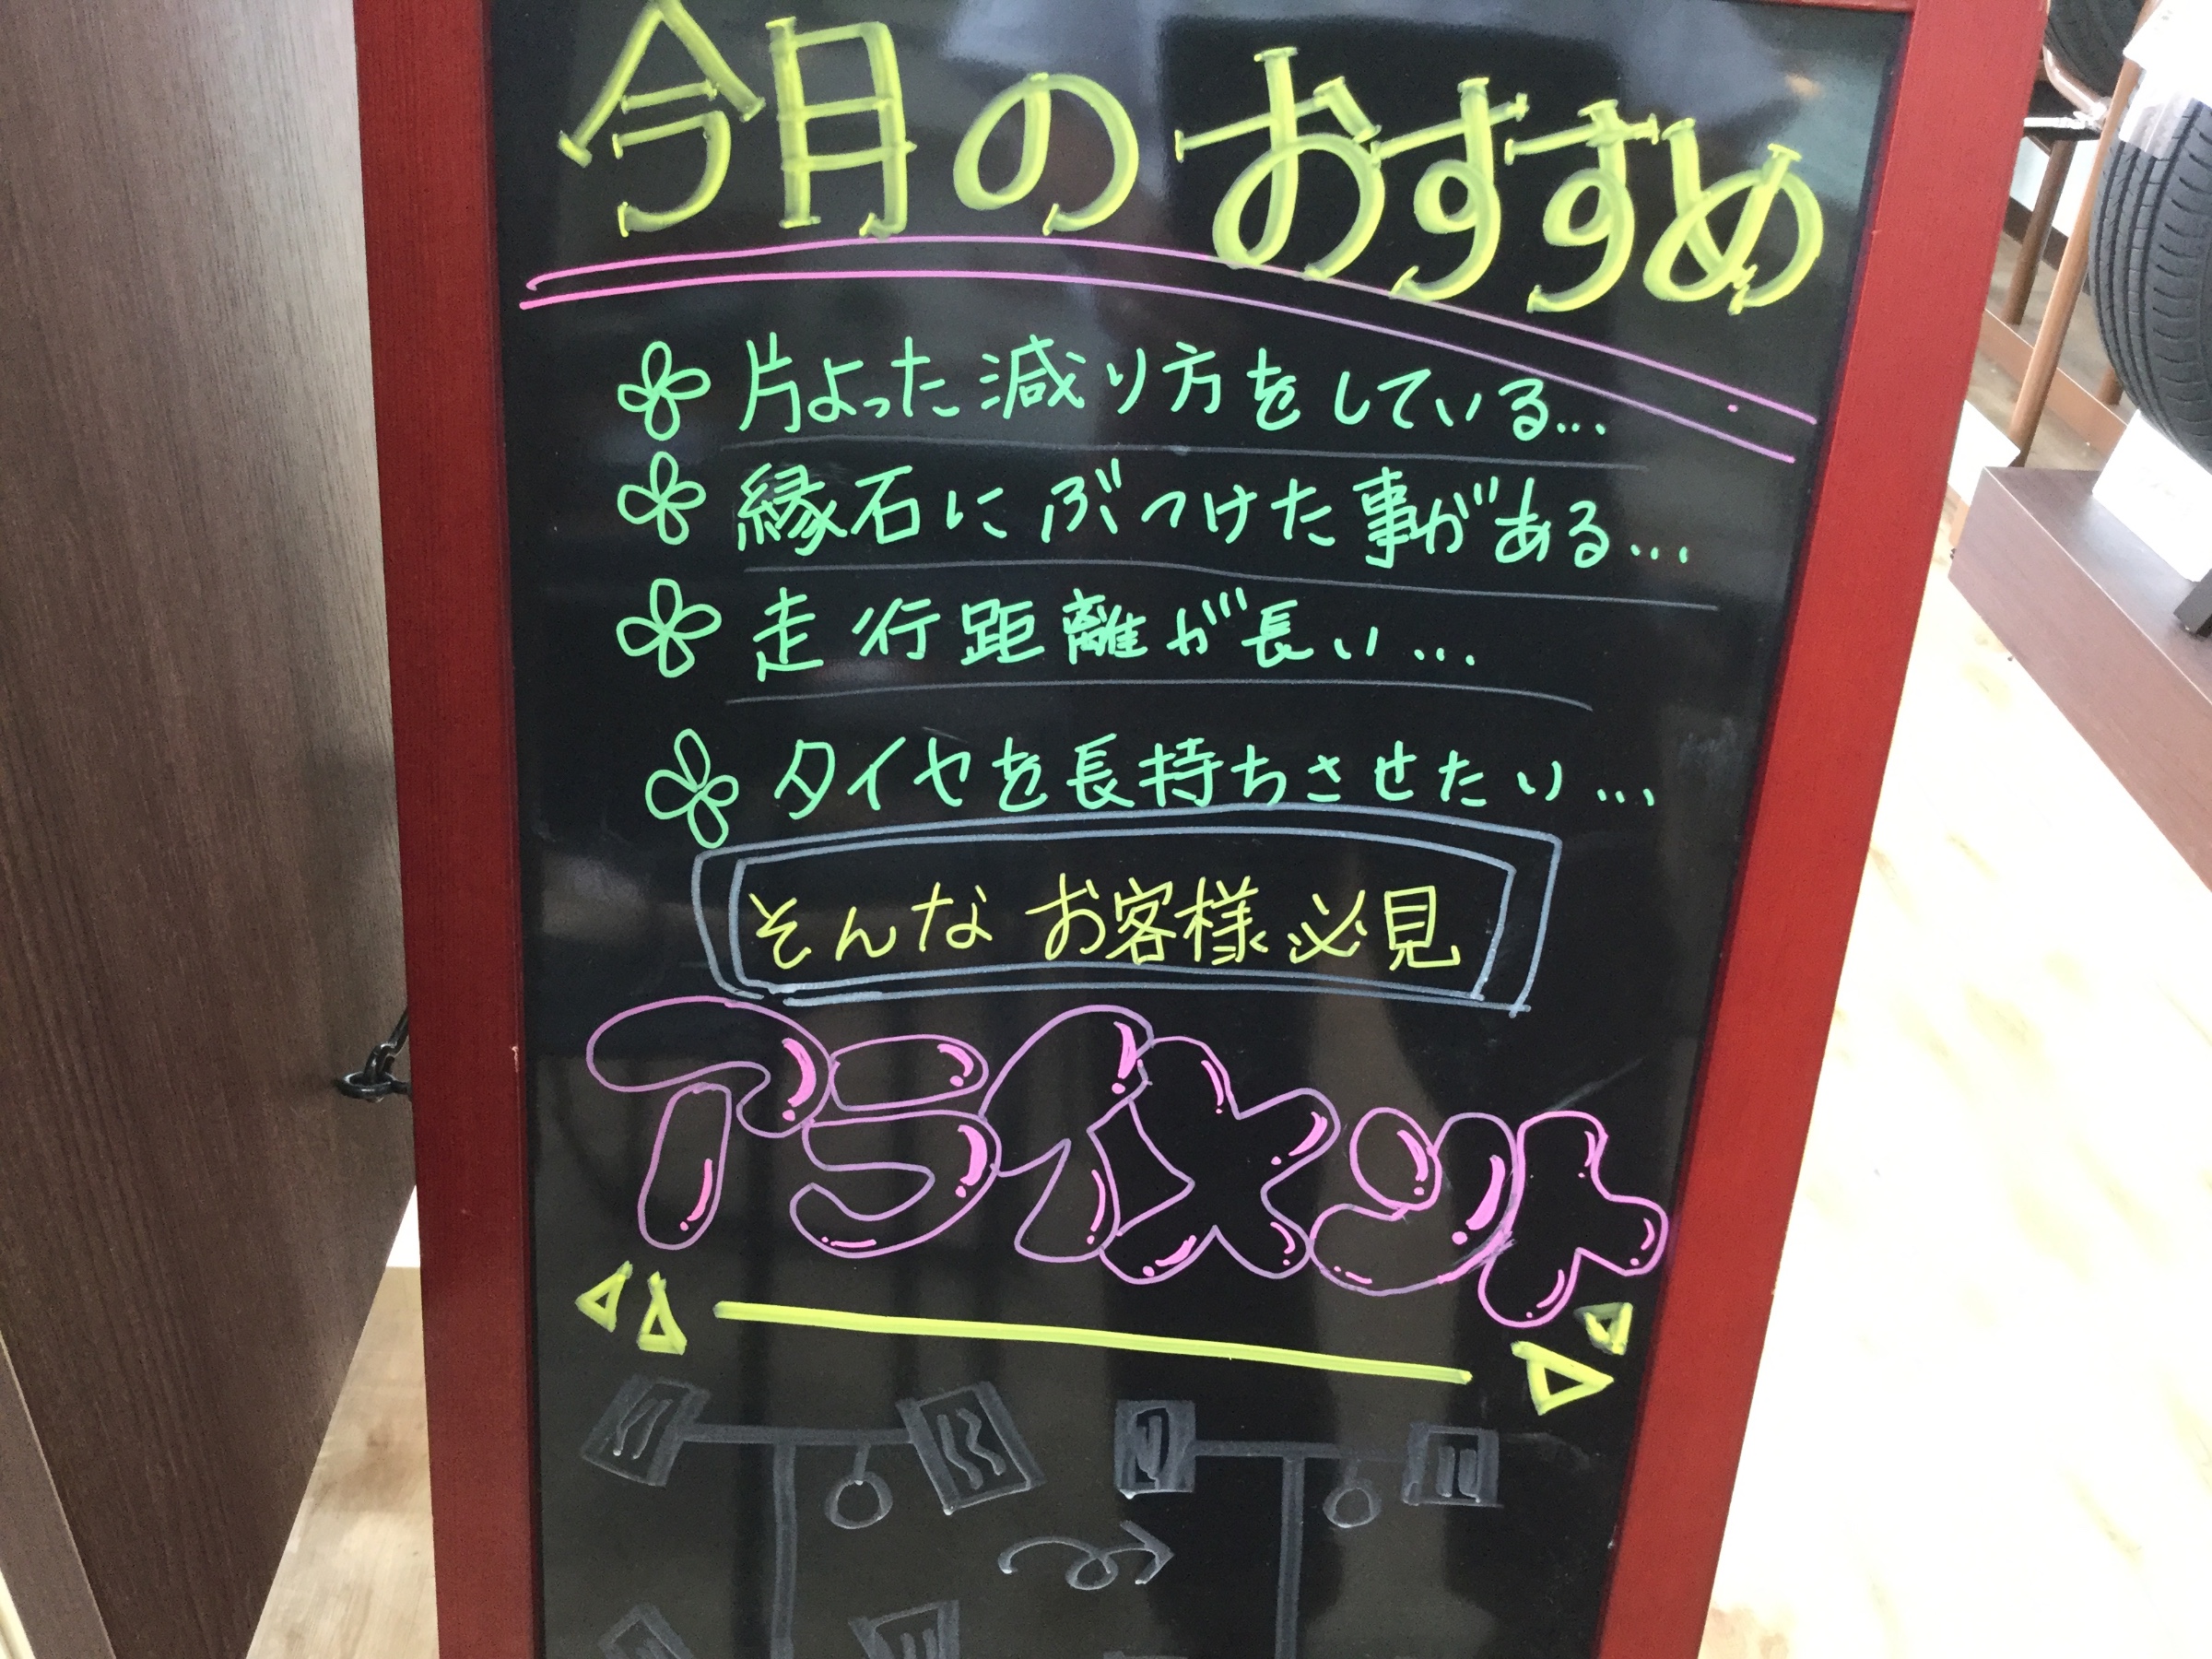 今月のおすすめ
片よった減り方をしている...
縁石にぶつけた事がある...
走行距離が長い...
タイヤを長持ちさせたい...
そんなお客様必見
アライメント